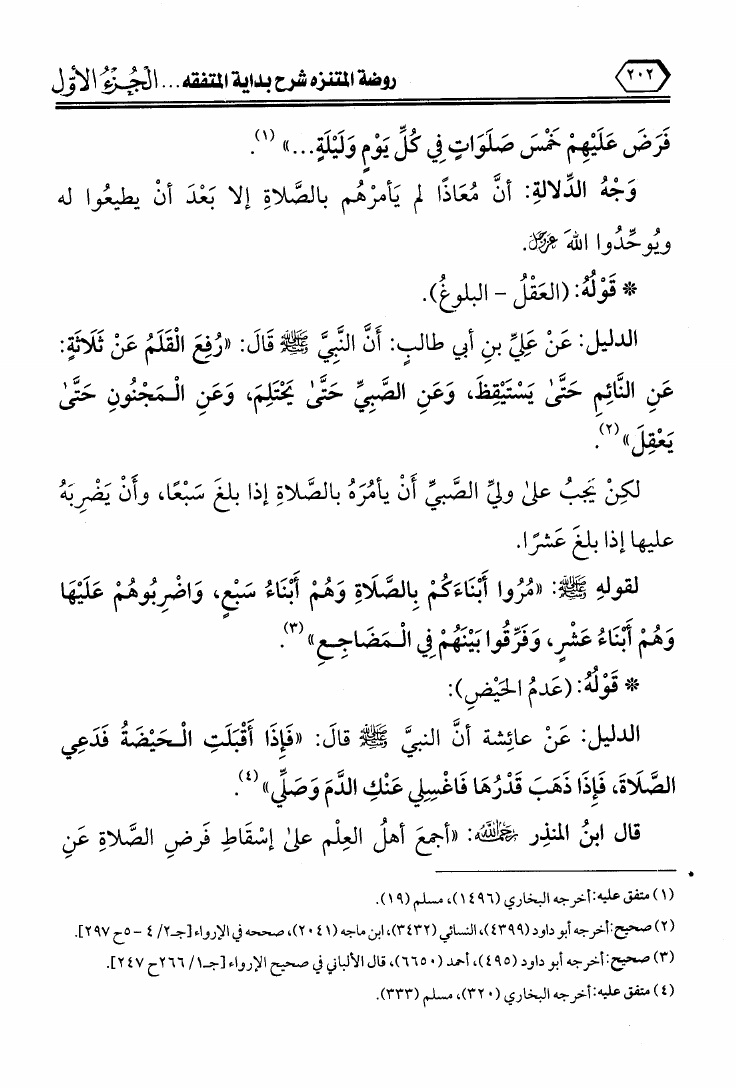 ٢٠٢ روضة المتنزه شرح بداية المتفقه ... الْجُزْءُ الأَوَّل
فَرَضَ عَلَيْهِمْ خَمْسَ صَلَوَاتٍ فِي كُلِّ يَوْمٍ وَلَيْلَةٍ...» (١).
وَجْهُ الدِّلالةِ: أنَّ مُعَاذًا لم يَأمرْهُم بالصَّلاةِ إلا بَعْدَ أنْ يطيعُوا له
ويُوحِّدُوا اللهَ عَزَّ وَجَلَّ.
* قَوْلُهُ: (العَقْلُ – البلوغُ).
الدليل: عَنْ عَلِيِّ بنِ أبي طالبٍ: أَنَّ النَّبِيَّ ﷺ قَالَ: «رُفِعَ الْقَلَمُ عَنْ ثَلَاثَةٍ:
عَنِ النَّائِمِ حَتَّىٰ يَسْتَيْقِظَ، وَعَنِ الصَّبِيِّ حَتَّىٰ يَحْتَلِمَ، وَعَنِ الْـمَجْنُونِ حَتَّىٰ
يَعْقِلَ» (٢).
لكِنْ يَجِبُ علىٰ وليِّ الصَّبيِّ أَنْ يأمُرَهُ بالصَّلاةِ إذا بلغَ سَبْعًا، وأَنْ يَضْرِبَهُ
عليها إذا بلغَ عَشرًا.
لقولهِ ﷺ: «مُرُوا أَبْنَاءَكُمْ بِالصَّلَاةِ وَهُمْ أَبْنَاءُ سَبْعٍ، وَاضْرِبُوهُمْ عَلَيْهَا
وَهُمْ أَبْنَاءُ عَشْرٍ، وَفَرِّقُوا بَيْنَهُمْ فِي الْـمَضَاجِعِ» (٣).
* قَوْلُهُ: (عَدمُ الحَيْضِ):
الدليل: عَنْ عائِشة أنَّ النبيَّ ﷺ قالَ: «فَإِذَا أَقْبَلَتِ الْـحَيْضَةُ فَدَعِي
الصَّلَاةَ، فَإِذَا ذَهَبَ قَدْرُهَا فَاغْسِلِي عَنْكِ الدَّمَ وَصَلِّي» (٤).
قال ابنُ المنذِر رَحِمَهُ اللهُ: «أجمعَ أهلُ العِلْم علىٰ إسْقاطِ فَرضِ الصَّلاةِ عَنِ
(١) متفق عليه: أخرجه البخاري (١٤٩٦)، مسلم (١٩).
(٢) صحيح: أخرجه أبو داود (٤٣٩٩)، النسائي (٣٤٣٢)، ابن ماجه (٢٠٤١)، صححه في الإرواء [جـ٢/ ٤ – ٥ح ٢٩٧].
(٣) صحيح: أخرجه أبو داود (٤٩٥)، أحمد (٦٦٥٠)، قال الألباني في صحيح الإرواء [جـ١/ ٢٦٦ح ٢٤٧].
(٤) متفق عليه: أخرجه البخاري (٣٢٠)، مسلم (٣٣٣).